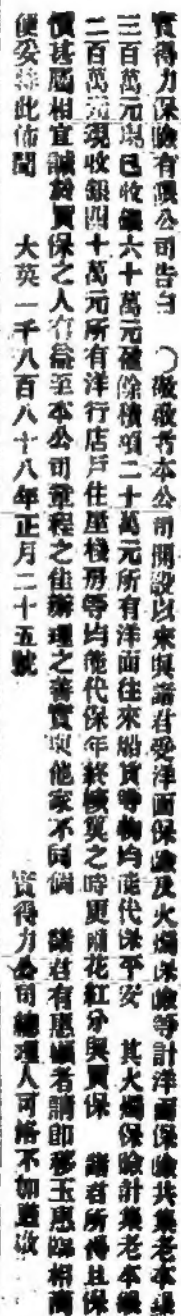 實得力保險有限公司告白　○啟者本公司開設以來與諸君受洋面保險及火燭保險等計洋面保險共集老本銀
三百萬元現已收銀六十萬元確除積項二十萬元所有洋面往來船貨等物均能代保平安　其火燭保險計集老本銀
二百萬元現收銀四十萬元所有洋行店戶住屋棧房等均能代保年終核算之時更將花紅分與買保　諸君所得且保
價甚屬相宜誠於買保之人有益至本公司章程之佳辦理之善實與他家不同倘　諸君有惠顧者請即移玉惠臨相商
便妥特此佈聞　大英一千八百八十八年正月二十五號　實得力公司總理人可洛不加啟